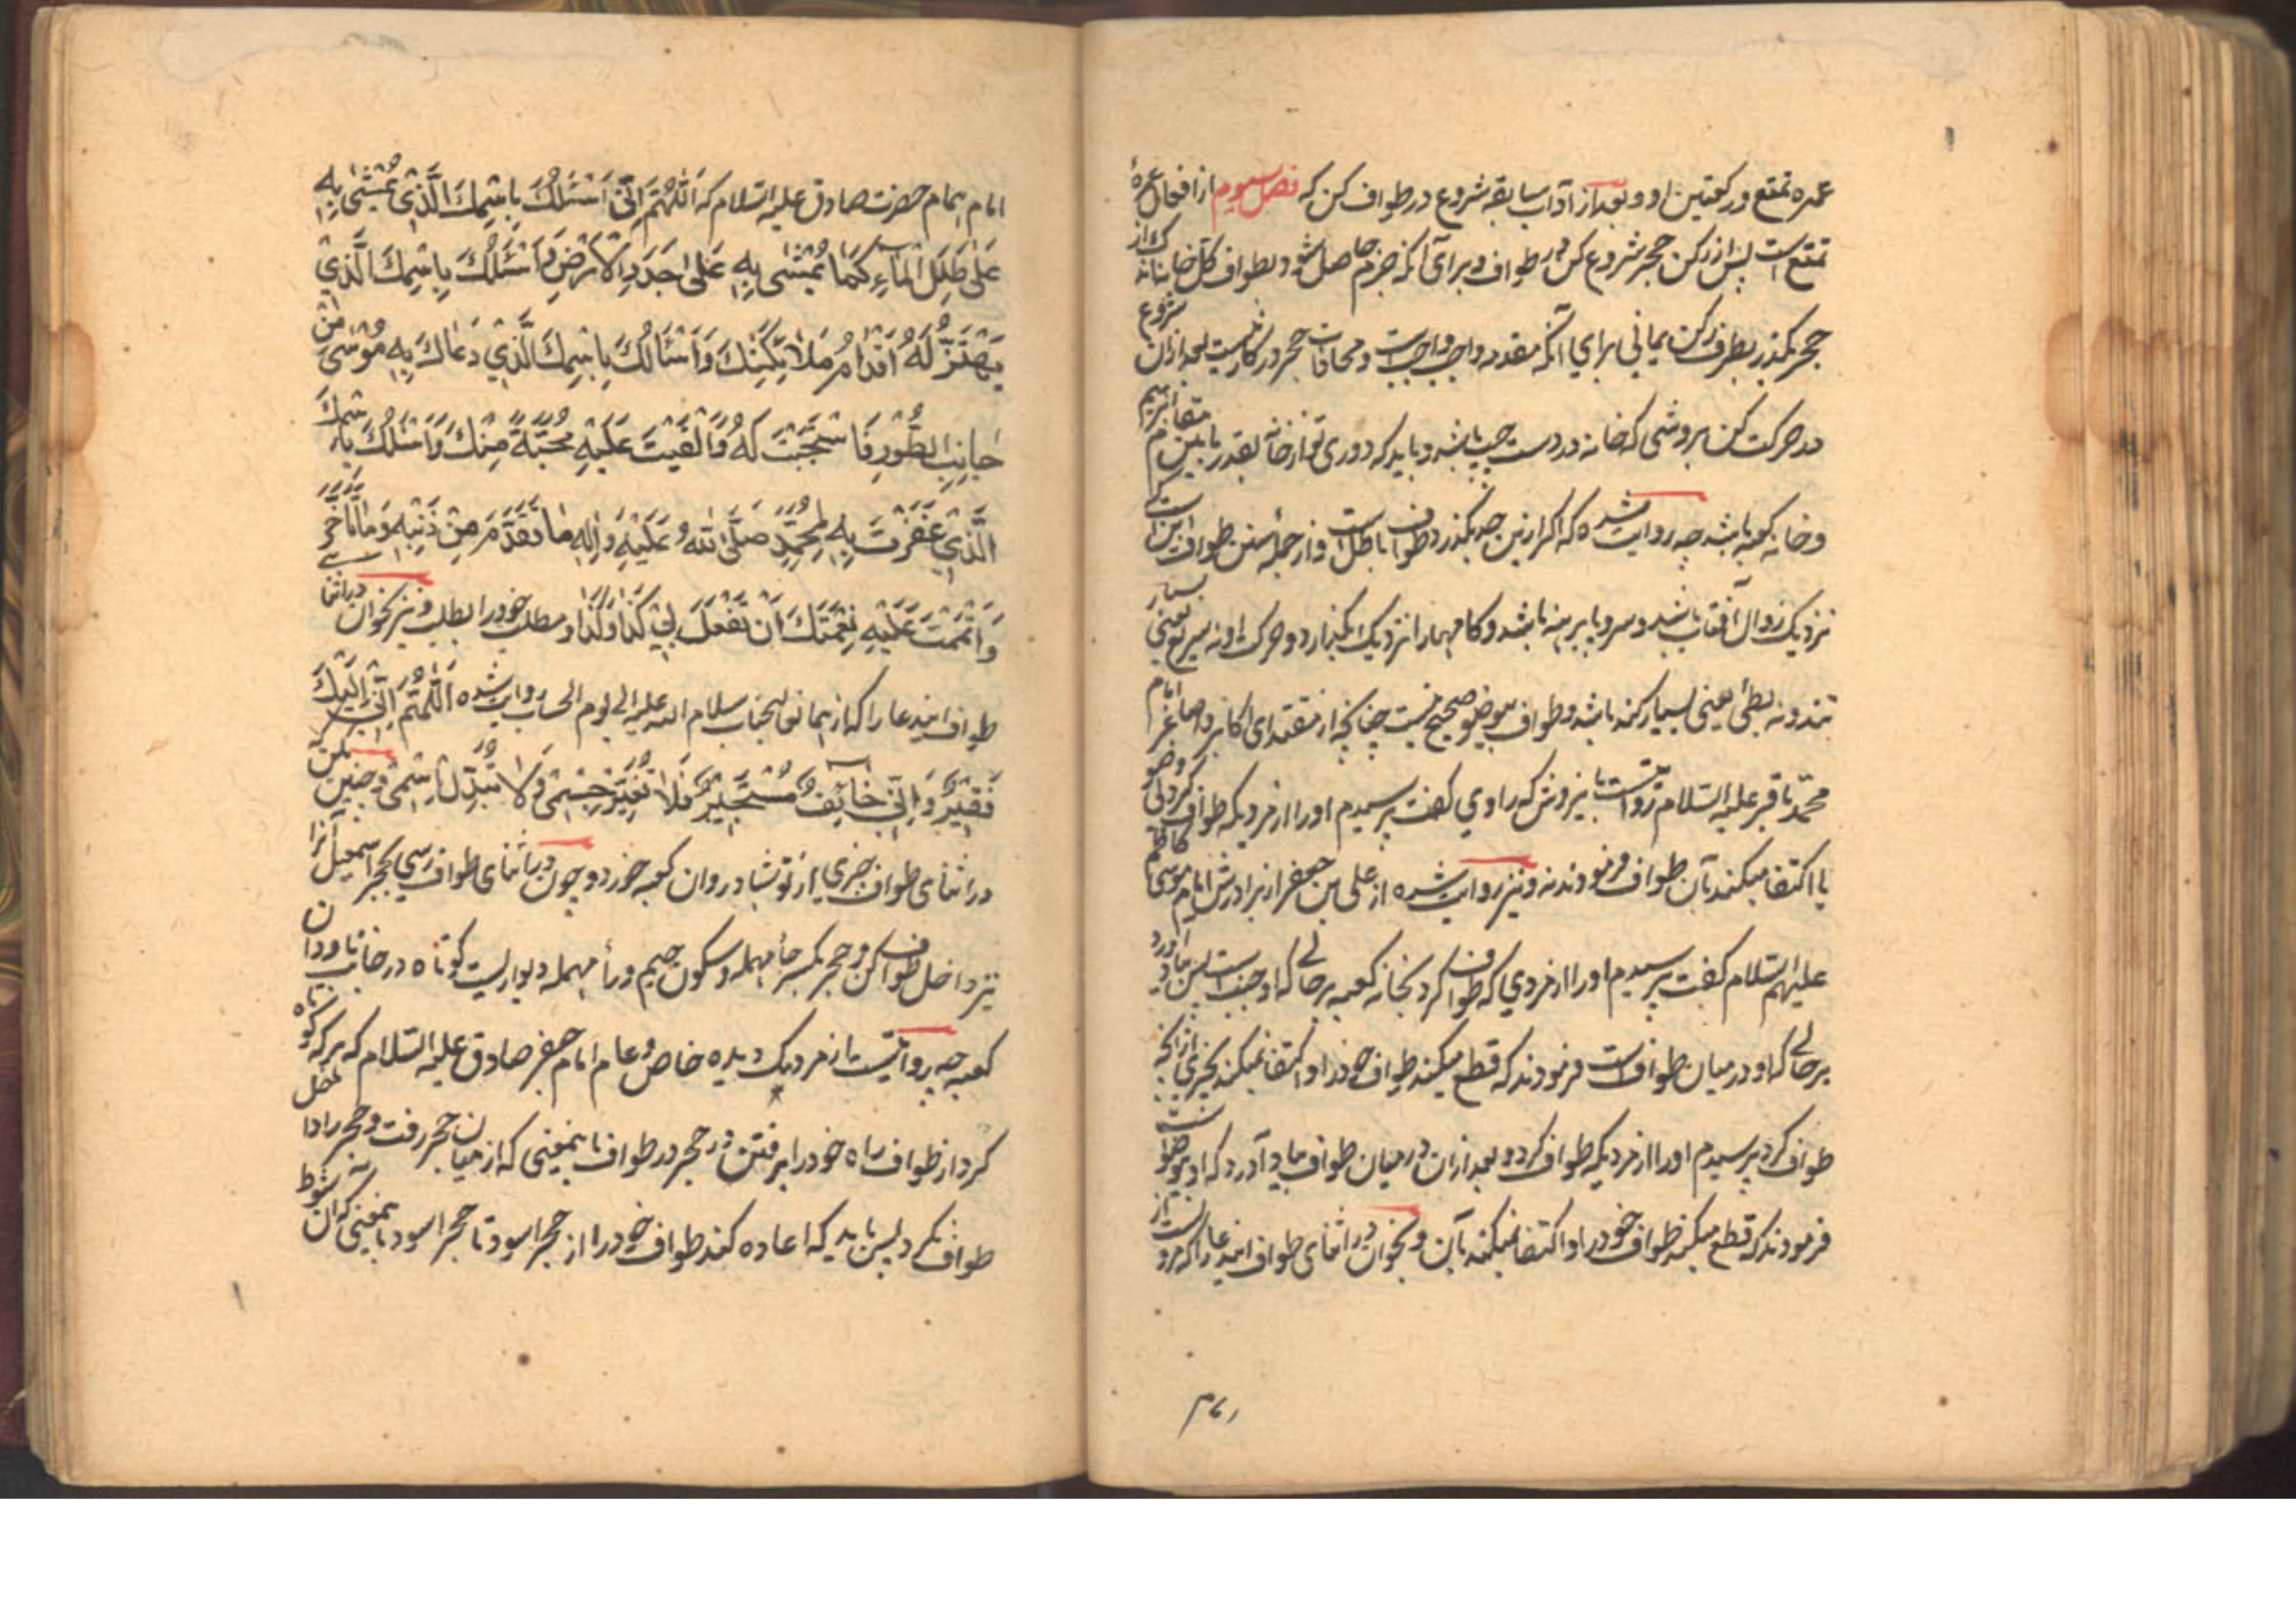 عمره تمتع و رکعتین او و بعد از آداب سابقه شروع در طواف کن که فصل سیوم از افعال عمره
تمتع است پس از رکن حجر شروع کن در طواف و برای آنکه جزم حاصل شود بطواف کل خانه
حجر بگذر بطرف رکن یمانی برای آنکه مقدمه واجب واجبست و محاذات حجر در کار است بعد ازان شروع
در حرکت کن بروشی که خانه در دست چپ باشد و باید که دوری تو از خانه بقدر ما بین مقام ابرهیم
و خانه کعبه باشد چه روایت شده که اگر ازین حد بگذرد طواف باطل است و از جمله سنن طواف اینست که
نزدیک زوال آفتاب باشد و سر و پا برهنه باشد و کامها را نزدیک بگذارد و حرکت او نه سریع یعنی بسیار
تند و نه بطئ یعنی بسیار کند باشد و طواف بیوضو صحیح نیست چنانچه از مقتدای اکابر و اصاغر امام
محمد باقر علیه السلام روایتست باین روش که راوی گفت پرسیدم او را از مردیکه طواف کرد بی وضو
یا اکتفا میکند بآن طواف فرمودند نه و نیز روایت شده از علی بن جعفر از برادرش امام موسی کاظم
علیهم السلام گفت پرسیدم او را از مردی که طواف کرد بخانه کعبه بر حالی که او جنبست پس بیاد آورد
بر حالی که او در میان طواف است فرمودند که قطع میکند طواف خود را و اکتفا نمیکند بچیزی از آنچه
طواف کرد پرسیدم او را از مردیکه طواف کرد و بعد ازان در میان طواف بیاد آورد که او بیوضو است
فرمودند که قطع میکند طواف خود را و اکتفا نمیکند بآن و بخوان در اثنای طواف این دعا را که مرویست از
امام همام حضرت صادق علیه السلام که اَللّٰهُمَّ اِنِّی اَسْئَلُكَ بِاسْمِكَ الَّذِي يُمْشٰى بِهِ
عَلٰى طَلَلِ الْمَاءِ كَمَا يُمْشٰى بِهِ عَلٰى جَدَدِ الْاَرْضِ وَاَسْئَلُكَ بِاسْمِكَ الَّذِي
يَهْتَزُّ لَهُ اَقْدَامُ مَلَائِكَتِكَ وَاَسْئَالُكَ بِاسْمِكَ الَّذِي دَعَاكَ بِهِ مُوْسٰى مِنْ
جَانِبِ الطُّوْرِ فَاسْتَجَبْتَ لَهُ وَاَلْقَيْتَ عَلَيْهِ مُحَبَّةً مِنْكَ وَاَسْئَلُكَ بِاسْمِكَ
الَّذِي غَفَرْتَ بِهِ لِمُحَمَّدٍ صَلَّى اللّٰهُ عَلَيْهِ وَاٰلِهِ مَا تَقَدَّمَ مِنْ ذَنْبِهِ وَمَا تَاَخَّرَ
وَاَتْمَمْتَ عَلَيْهِ نِعْمَتَكَ اَنْ تَفْعَلَ بِيْ كَذَا وَكَذَا و مطلب خود را بطلب و نیز بخوان در اثنا
طواف این دعا را که از همان عالیجناب سلام الله علیه الی یوم الحساب روایت شده اَللّٰهُمَّ اِنِّی اِلَيْكَ
فَقِيْرٌ وَاِنِّي خَائِفٌ مُسْتَجِيْرٌ فَلَا تُغَيِّرْ جِسْمِيْ وَلَا تُبَدِّلْ اِسْمِيْ و چنین کن که
در اثنای طواف چیزی از تو بشادروان کعبه خورد و چون در اثنای طواف رسی بحجر اسمعیل آنرا
نیز داخل طواف کن و حجر بکسر حأ مهمله و سکون جیم و رأ مهمله دیواریست کوتاه در جانب ناودان
کعبه چه روایتیست از مردیک دیده خاص و عام امام جعفر صادق علیه السلام که هر که کوتاه
کرد از طواف راه خود را برفتن در حجر در طواف باینمعنی که از میان حجر رفت و حجر را داخل
طواف نکرد پس باید که اعاده کند طواف خود را از حجر اسود تا حجر اسود باینمعنی که آن شوط